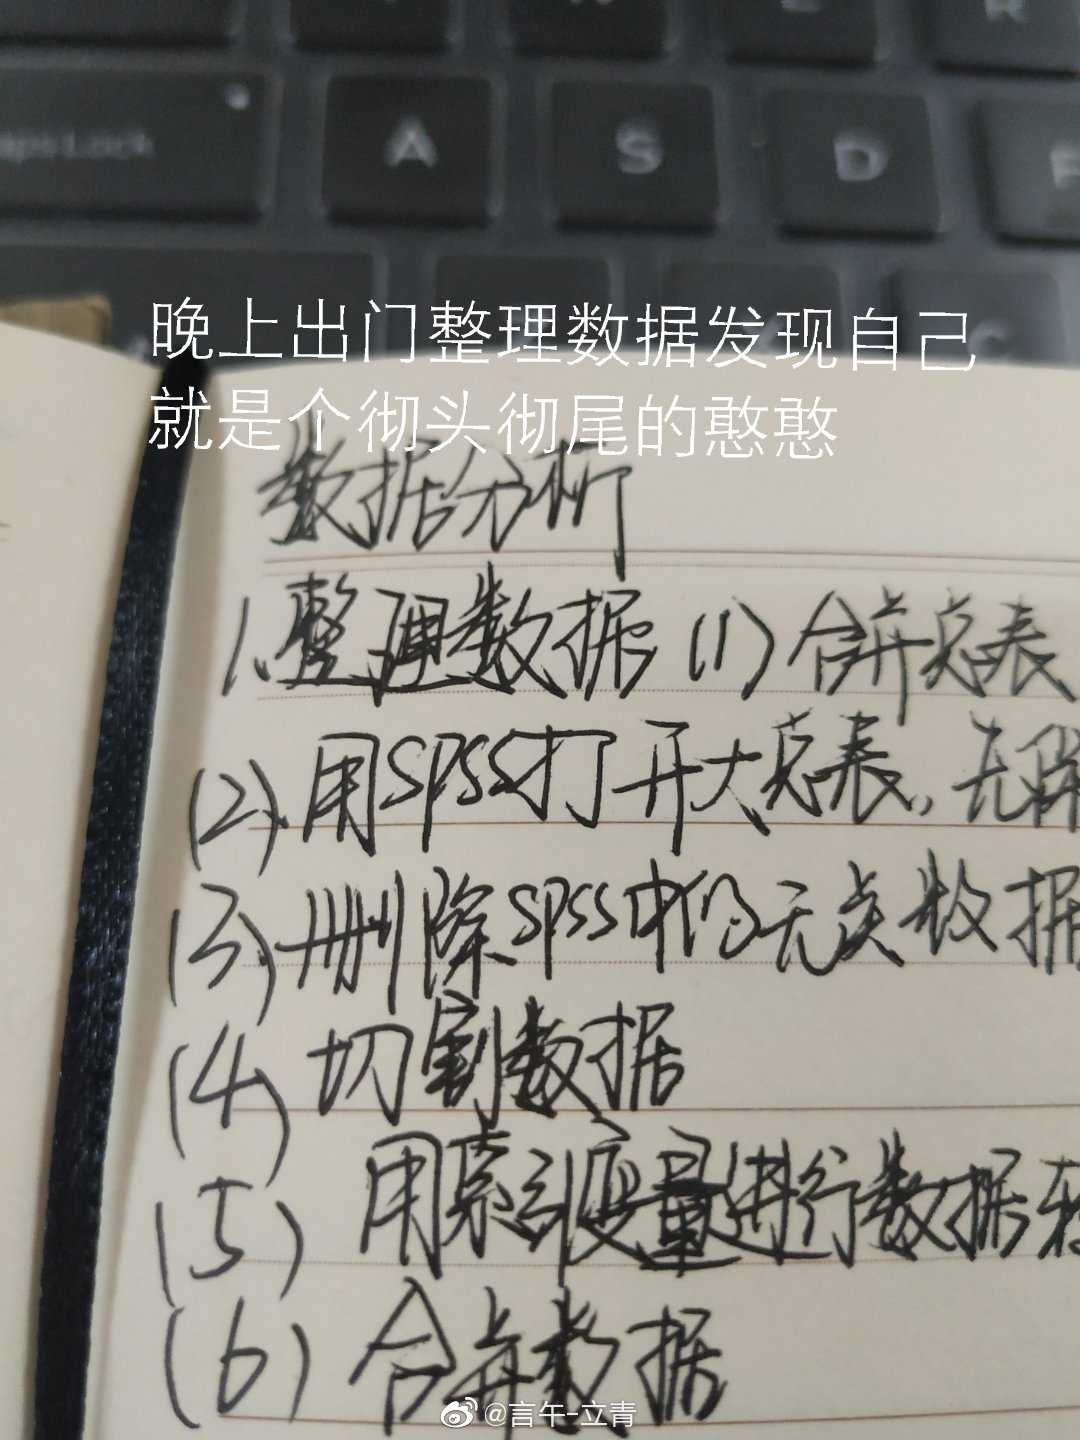 A S D
晚上出门整理数据发现自己
就是个彻头彻尾的憨憨
数据分析
1.整理数据 (1) 合并总表
(2).用SPSS打开大总表,
(3).删除SPSS中的无关数据
(4) 切割数据
(5) 用索引变量进行数据转
(6) 合并数据
@言午-立青